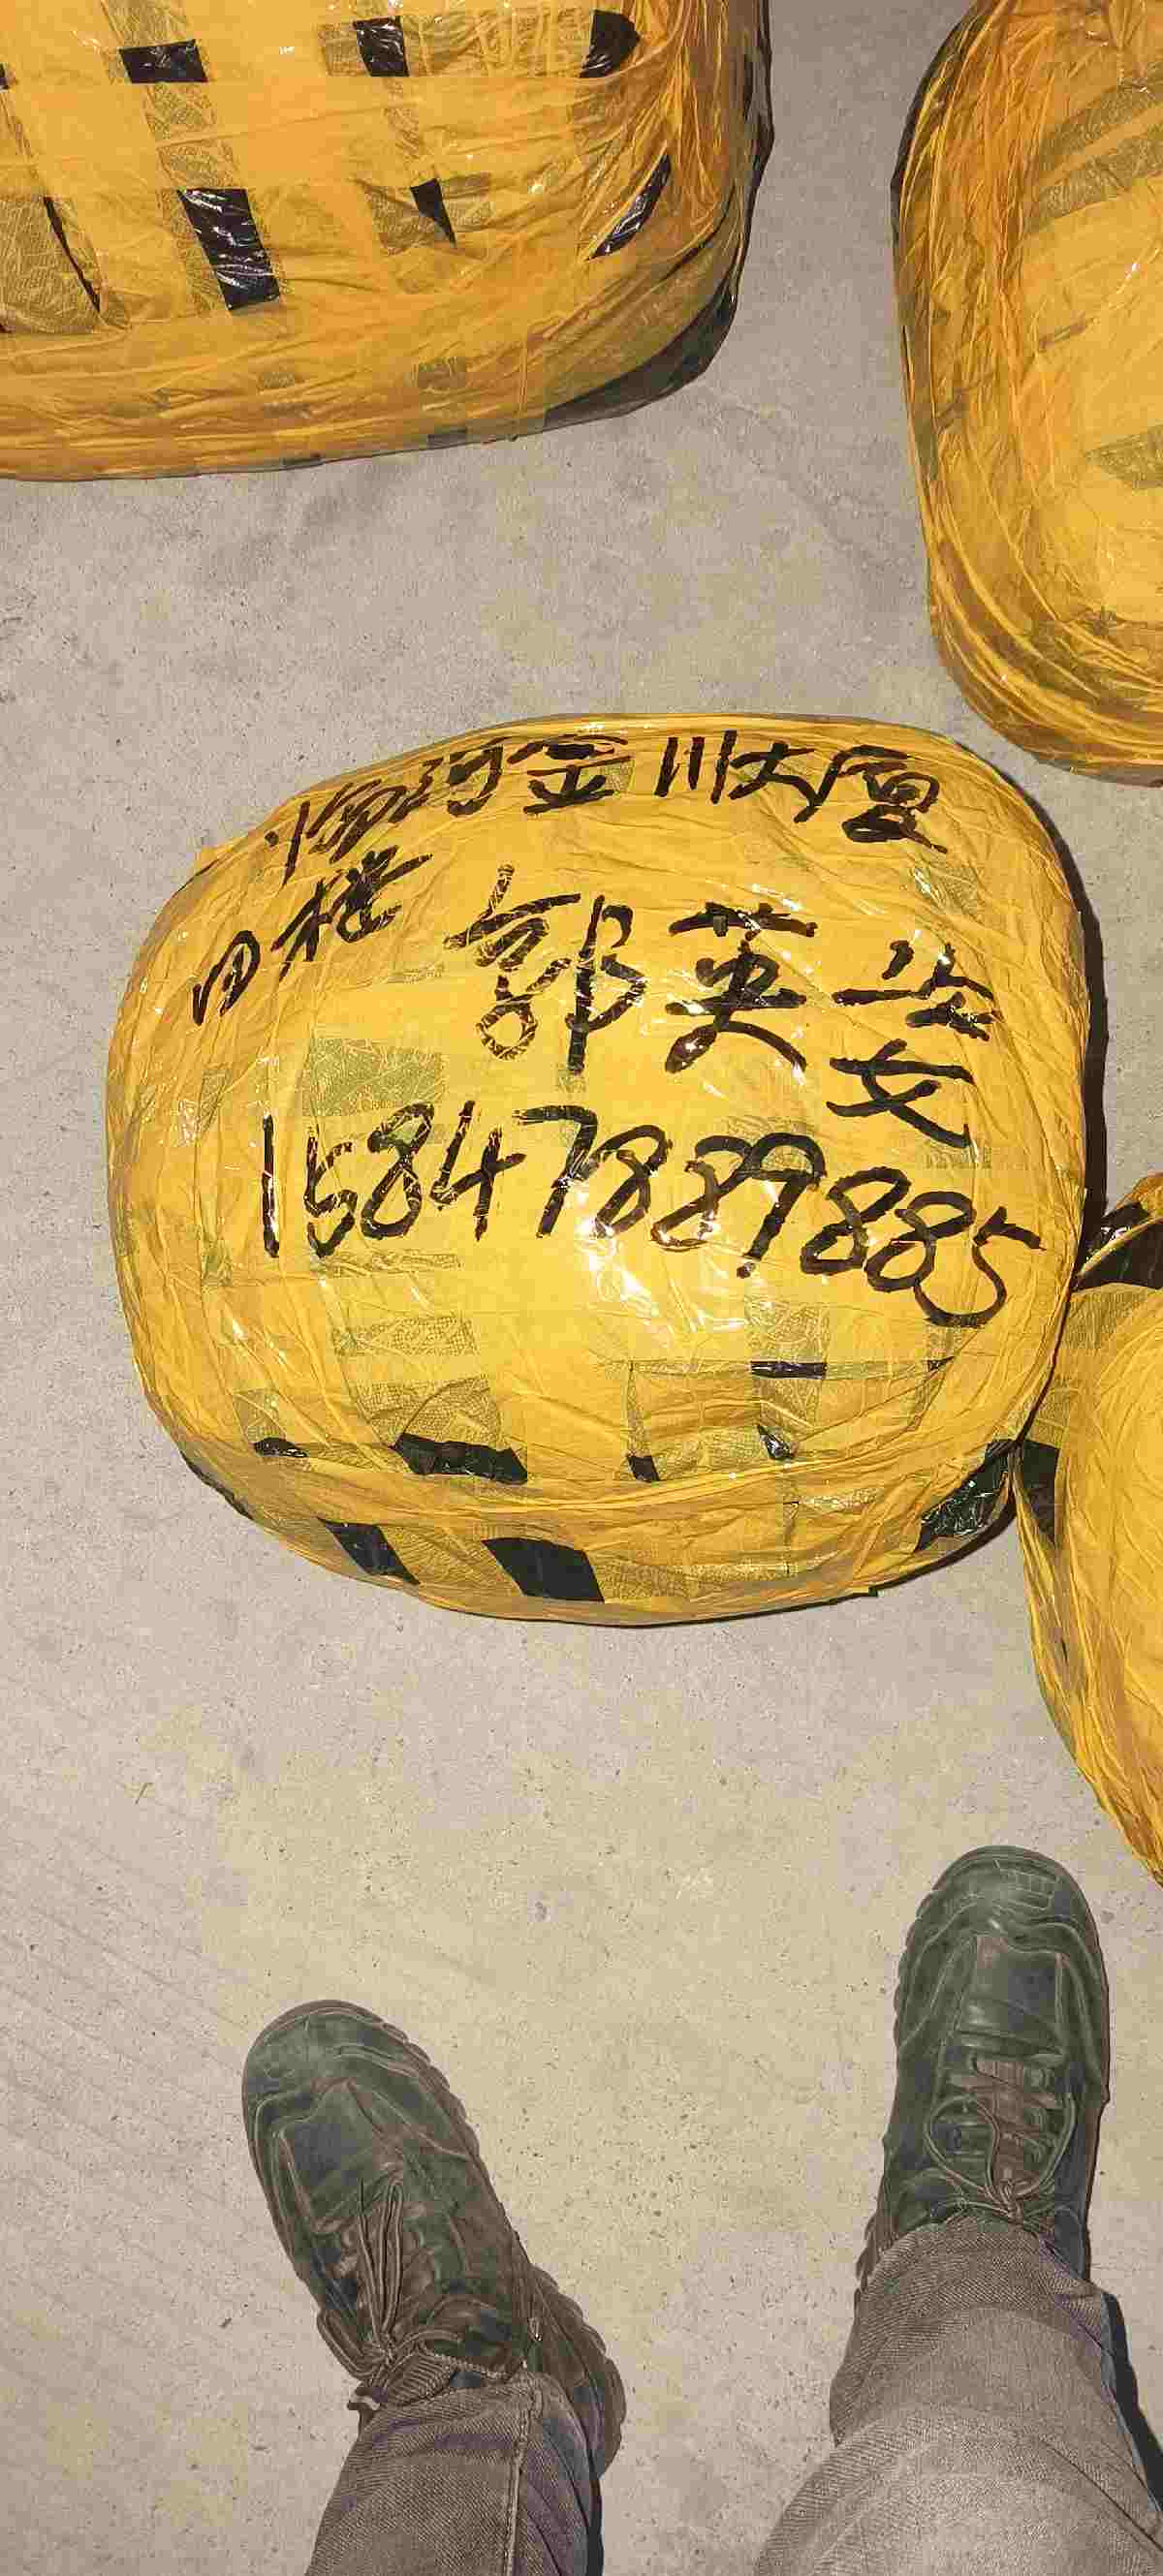 临河金川大厦
四楼 郭英姿
15847889885